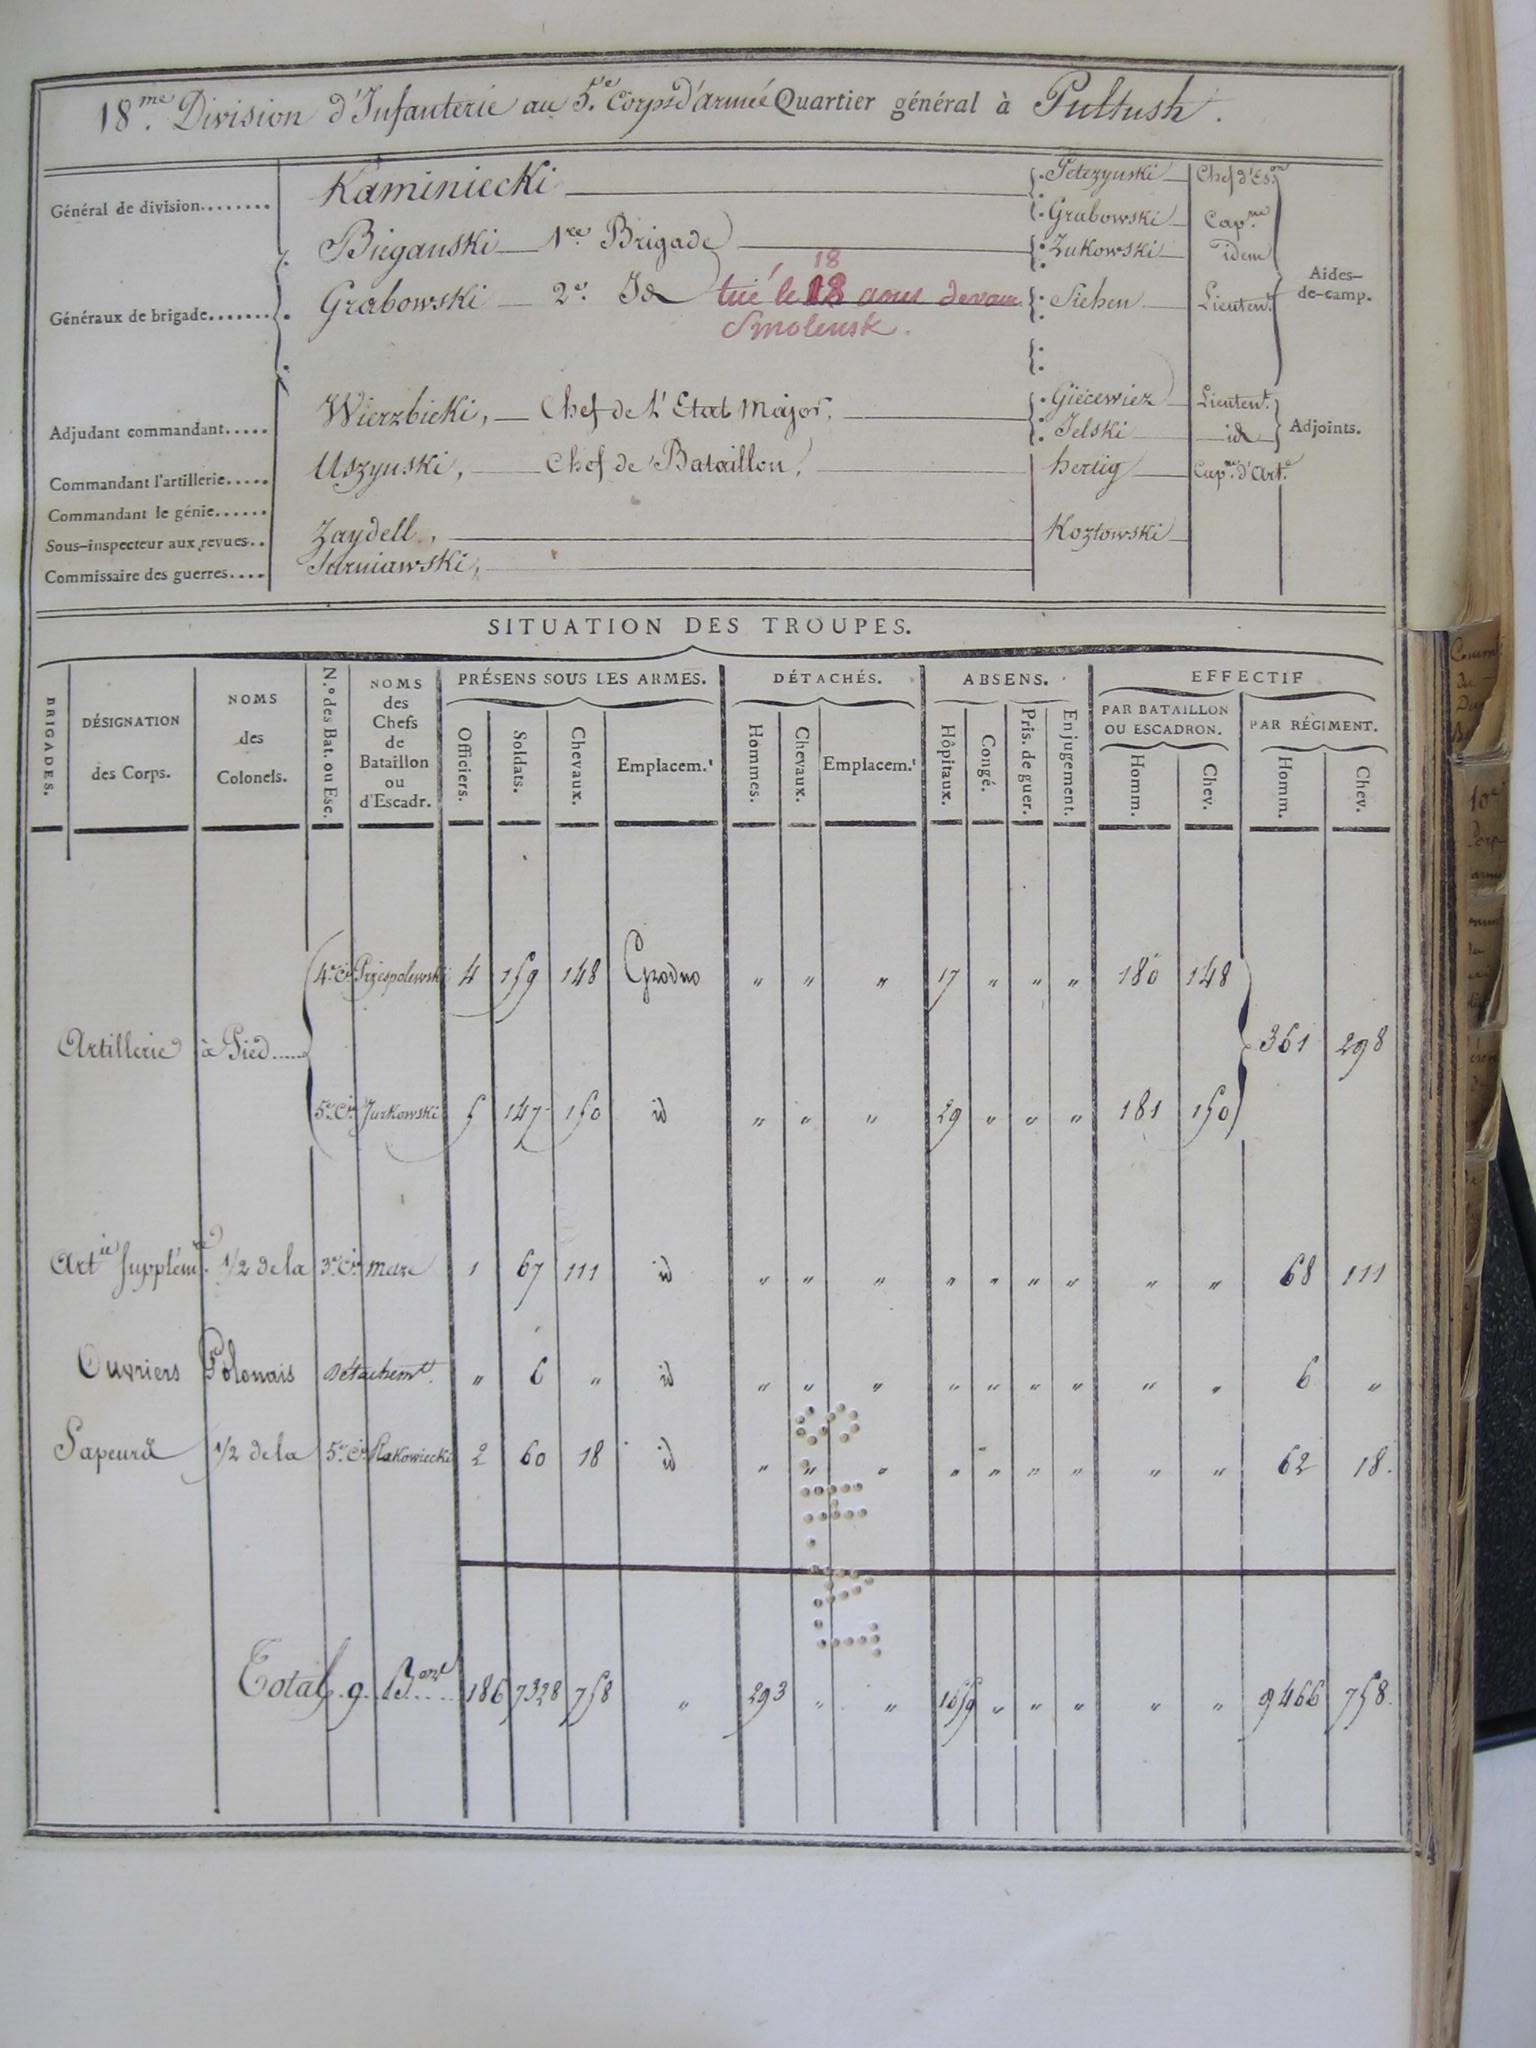 18.me Division d'Infanterie au 5.e Corps d'armée Quartier général à Pultush.
Général de division........ Kaminiecki Petczynski Chef d'Es.on
Grabowski Cap.ne
Généraux de brigade....... Bieganski 1.re Brigade Zukowski idem Aides-de-camp.
Grabowski 2.e Id tué le 18 18 aous devan Siehen Lieuten.t
Smolensk.
Adjudant commandant..... Wierzbicki, Chef de l'Etat Major. Giecewiez Lieuten.t Adjoints.
Jelski id
Commandant l'artillerie..... Uszynski, Chef de Bataillon, hertig Cap.ne d'Art.e
Commandant le génie......
Sous-inspecteur aux revues.. Zaydell, Koztowski
Commissaire des guerres.... Tarniawski,
SITUATION DES TROUPES.
BRIGADES. DÉSIGNATION des Corps. NOMS des Colonels. N.os des Bat. ou Esc. NOMS des Chefs de Bataillon ou d'Escadr. PRÉSENS SOUS LES ARMES. DÉTACHÉS. ABSENS. EFFECTIF
PAR BATAILLON OU ESCADRON. PAR RÉGIMENT.
Officiers. Soldats. Chevaux. Emplacem.t Hommes. Chevaux. Emplacem.t Hôpitaux. Congé. Pris. de guer. En jugement. Homm. Chev. Homm. Chev.
4.e Cie Przespolewski 4 159 148 Grodno " " " 17 " " " 180 148
Artillerie à Pied..... 361 298
5.e Cie Jurkowski 5 147 150 id " " " 29 " " " 181 150
Art.ie Supplém.re 1/2 de la 3.e Cie 1 67 111 id " " " " " " " " " 68 111
Ouvriers Polonais Détachem.t " 6 " id " " " " " " " " " 6 "
Sapeurs 1/2 de la 5.e Cie Rakowiecki 2 60 18 id " " " " " " " " " 62 18.
Total. 9. B.ons.... 186 7328 758 " 293 " " 1659 " " " " " 9466 758.